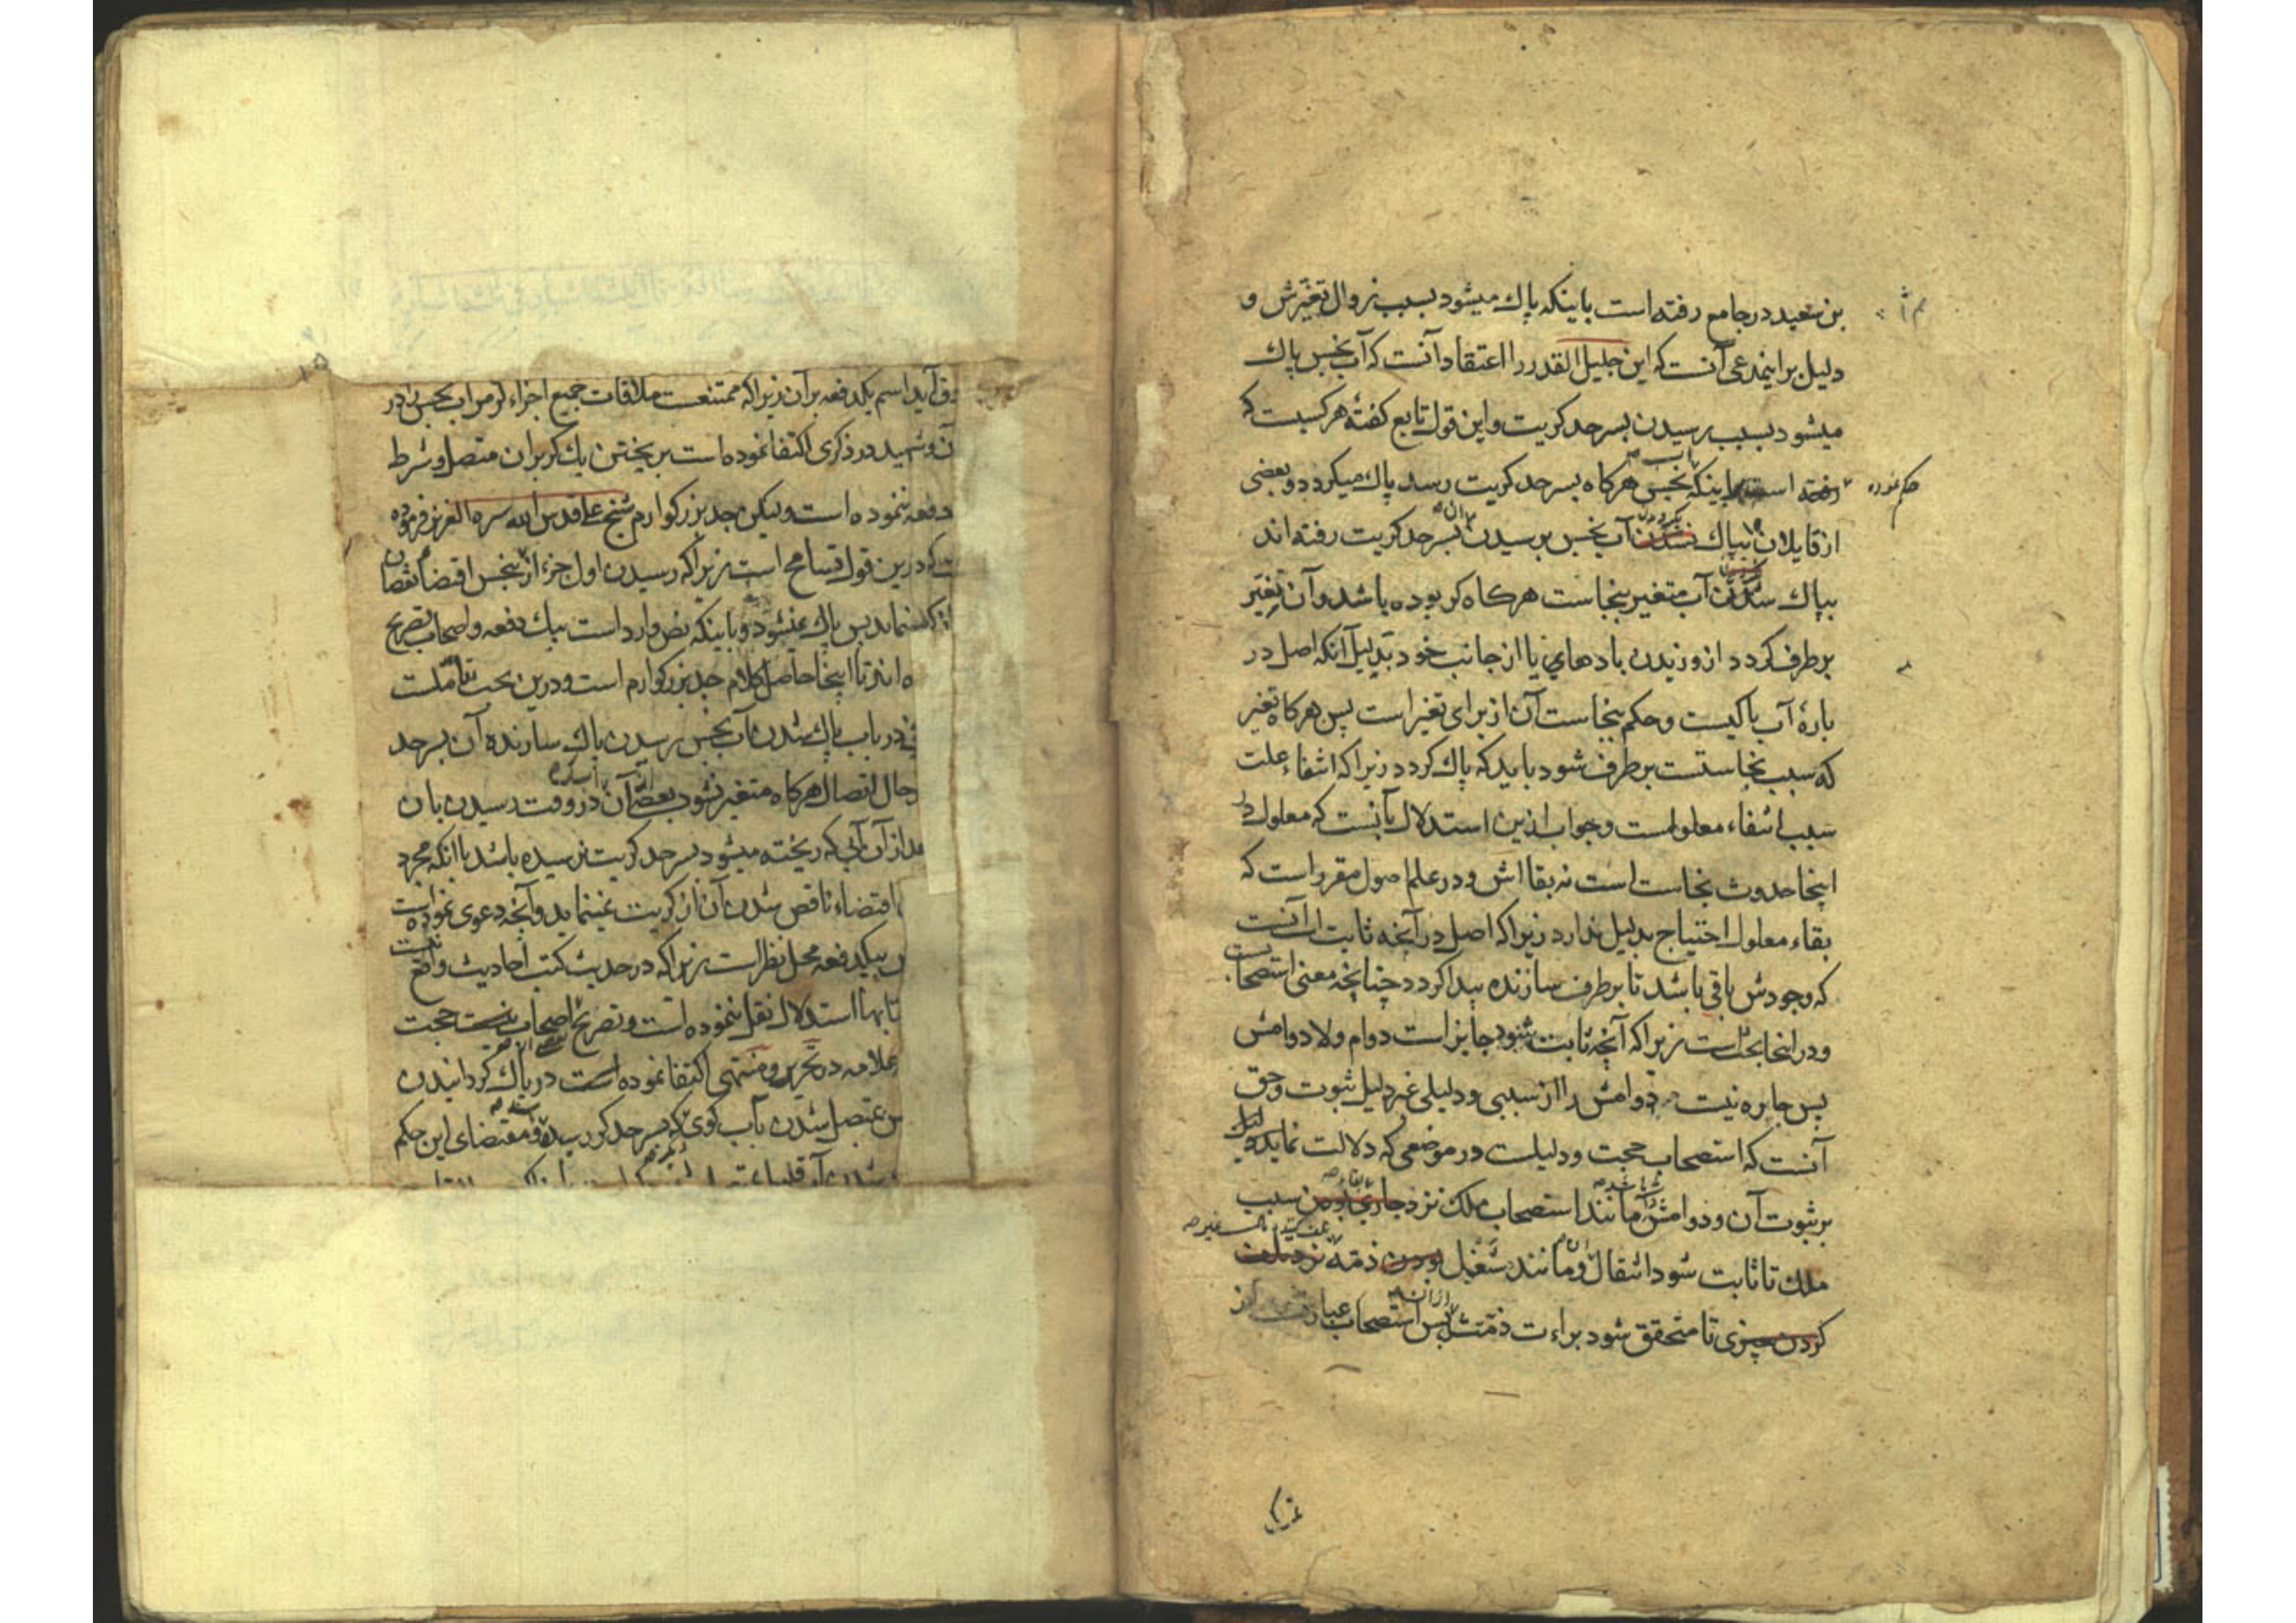 بن سعید در جامع رفته است باینکه پاك میشود بسبب زوال تغیرش و
دلیل براینمدعی آنست که این جلیل القدر را اعتقاد آنست که آب نجس پاك
میشود بسبب رسیدن بسرحد کریت و این قول تابع گفتهٔ هرکسیست که
رفته است باینکه نجس هرکاه بسرحد کریت رسد پاك میکردد و بعضی
حکم نموده
از قایلان بپاك نشدن آب نجس برسیدن بسرحد کریت رفته اند
بپاك شدن آب متغیر بنجاست هرکاه کر بوده باشد و آن تغیر
برطرف کردد از وزیدن بادهای یا از جانب خود بدلیل آنکه اصل در
بارهٔ آب پاکیست و حکم بنجاست آن از برای تغیر است پس هرکاه تغیر
که سبب نجاستست برطرف شود باید که پاك کردد زیرا که انتفاء علت
سبب انتفاء معلولست و جواب ازین استدلال آنست که معلول در
اینجا حدوث نجاست است نه بقا اش و در علم اصول مقرر است که
بقاء معلول احتیاج بدلیل ندارد زیرا که اصل در آنچه ثابت است آنست
که وجودش باقی باشد تا برطرف سازنده پیدا کردد چنانچه معنی استصحابست
و در اینجا بحث است زیرا که آنچه ثابت شود جایز است دوام و لا دوامش
پس چاره نیست دوامش را از سببی و دلیلی غیر دلیل ثبوت و حق
آنست که استصحاب حجت و دلیلست در موضعی که دلالت نماید دلیل
بر ثبوت آن و دوامش مانند استصحاب ملك نزد جاری بودن سبب
ملك تا ثابت شود انتقال و مانند شغل بودن ذمه نزد تلف
کردن چیزی تا متحقق شود براءت ذمتش پس استصحاب عبارت از
آید اسم یکدفعه برآن زیرا که ممتنعست ملاقات جمیع اجزاء کر مر آب نجس را در
آن و شهید در ذکری اکتفا نموده است بریختن یك کر بران متصل و شرط
دفعه ننموده است ولیکن جد بزرکوارم شیخ علی قدس الله سره العزیز فرموده
که درین قول تسامح است زیرا که رسیدن اول جزء از نجس اقتضاء نقصان
نماید پس پاك نمیشود و باینکه نص وارد است بیك دفعه و اصحاب تصریح
اند تا اینجا حاصل کلام جد بزرکوارم است و درین بحث تاملست
در باب پاك شدن آب نجس برسیدن پاك سازنده آن بسرحد
حال اتصال هرکاه متغیر نشود بعضی آن در وقت رسیدن بان
از آن آبی که ریخته میشود بسرحد کریت نرسیده باشد با آنکه مجرد
اقتضاء ناقص شدن آن از کریت نمینماید و آنچه دعوی نموده است
بیکدفعه محل نظر است زیرا که در حدیث کتب احادیث واقع نیست
تا بها استدلال نقل ننموده است و تصریح اصحاب نیست حجت
علامه در تحریر و منتهی اکتفا نموده است در پاك کردانیدن
بمتصل شدن بآب کوی که بسرحد کر رسیده و مقتضای این حکم